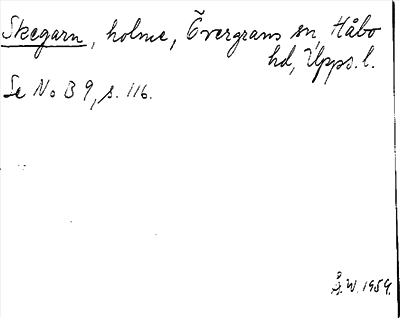 Skegarn, holme, Övergrans sn, Håbo
hd, Upps. l.
Se No B 9, s. 116.
W. 1959.